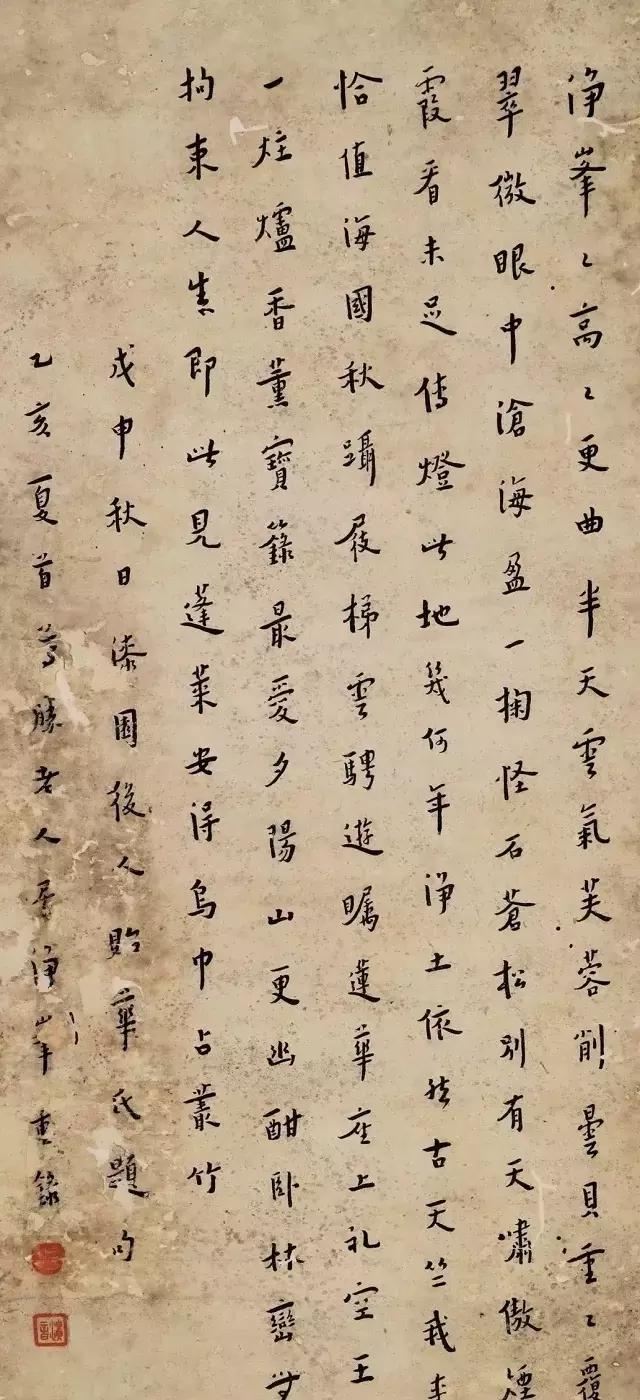 淨峯〻高〻更曲半天雲氣芙蓉削曇貝重〻覆
翠微眼中滄海盈一掬怪石蒼松別有天嘯傲煙
霞看未足傳燈此地幾何年淨土依然古天竺我來
恰值海國秋躡屐梯雲騁遊矚蓮華座上礼空王
一炷爐香薰寶籙最愛夕陽山更幽酣臥林巒
拘束人生即此見蓬萊安得烏巾占叢竹
戊申秋日漆園後人貽華氏題句
乙亥夏首尊勝老人居淨峯書錄